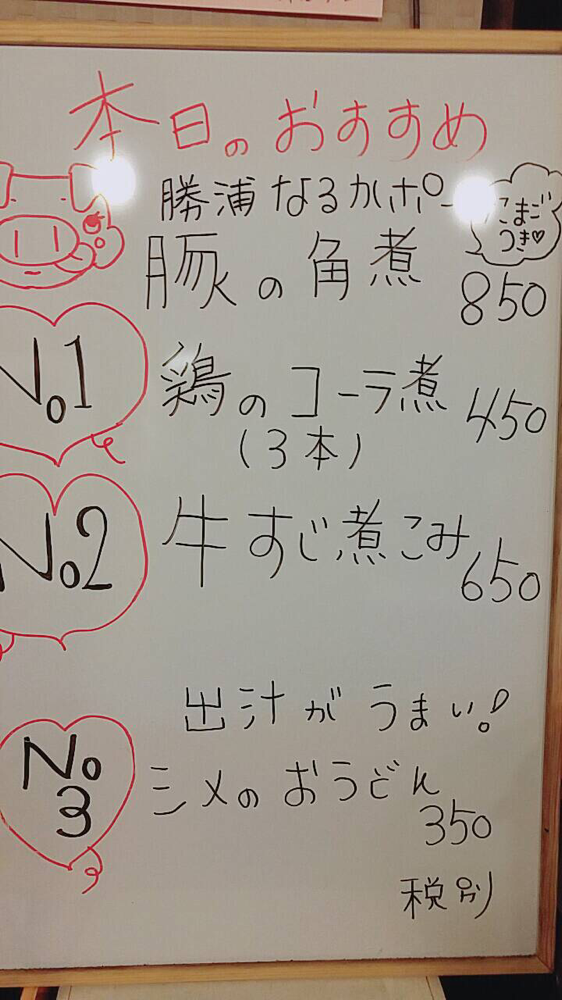 本日のおすすめ
勝浦なるかポー
たまご
つき♡
豚の角煮 850
No1
鶏のコーラ煮 450
(3本)
No2
牛すじ煮こみ 650
出汁がうまい!
No
3
シメのおうどん
350
税別